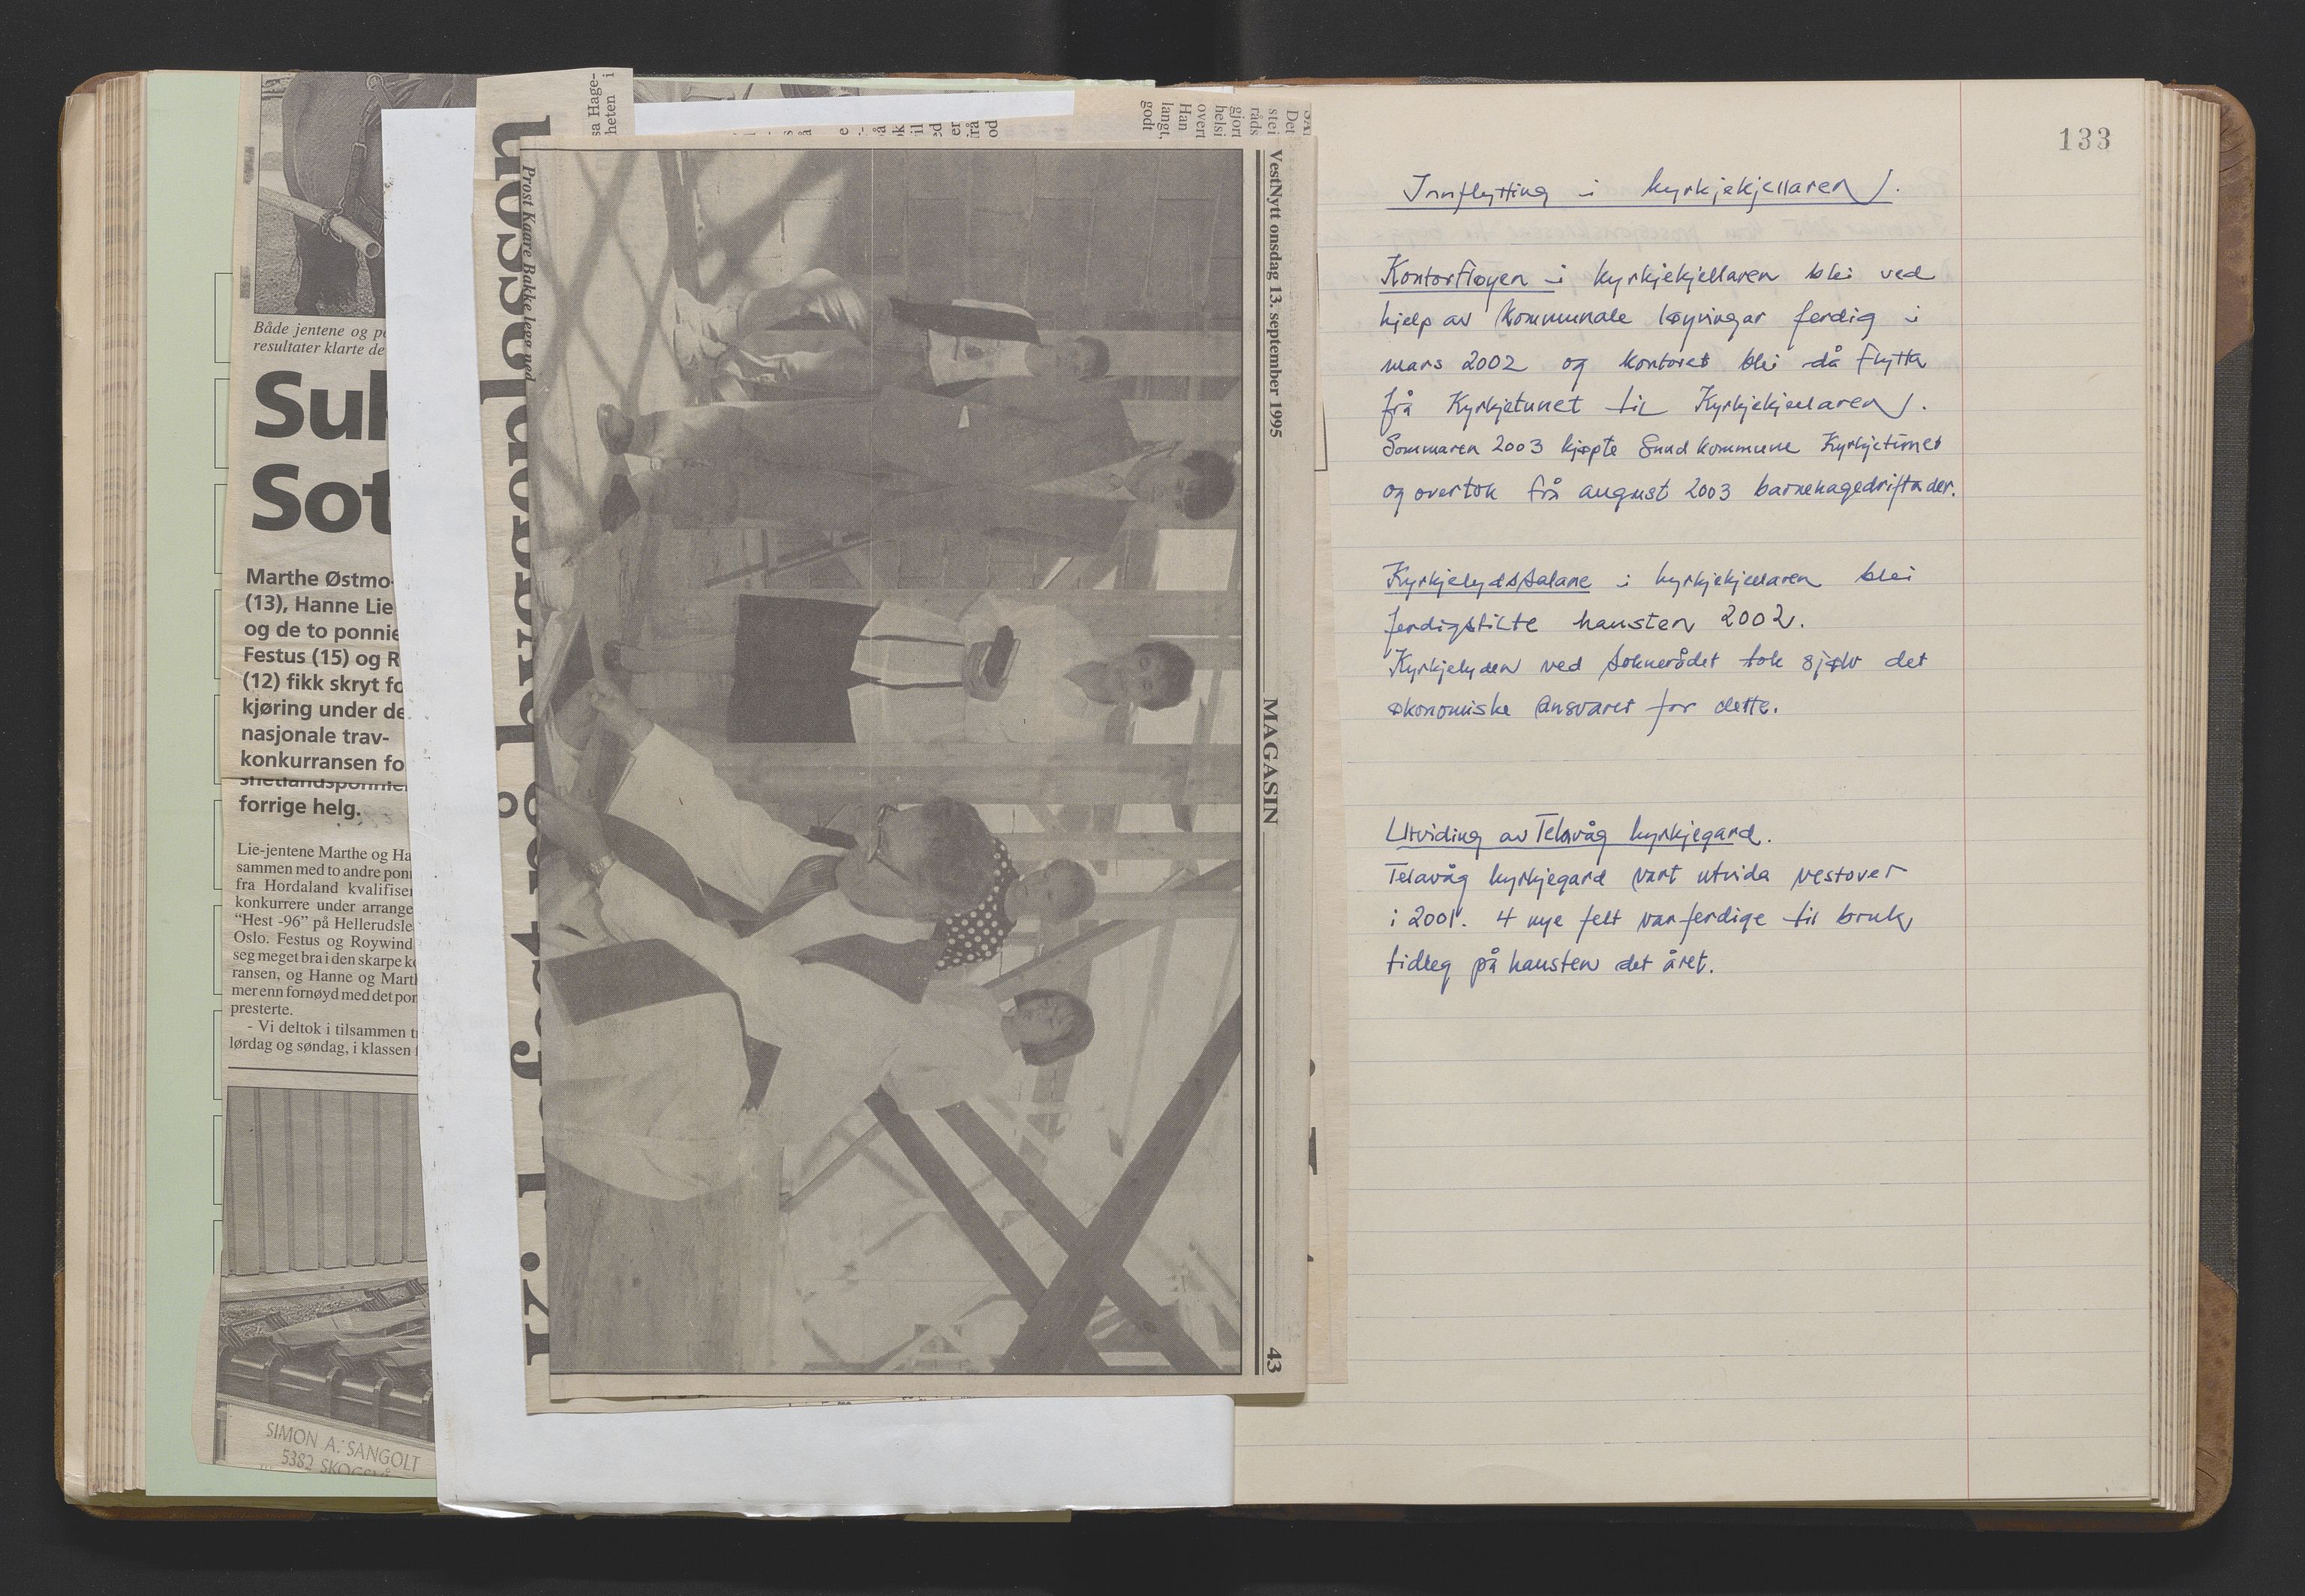 Både jentene og
resultater klarte de
Marthe Østmo-
(13), Hanne Lie
og de to ponnie
Festus (15) og R
(12) fikk skryt fo
kjøring under de
nasjonale trav-
konkurransen fo
shetlandsponnie
forrige helg.
Lie-jentene Marthe og Ha
sammen med to andre pon
fra Hordaland kvalifiser
konkurrere under arrange
“Hest -96” på Hellerudsle
Oslo. Festus og Roywind
seg meget bra i den skarpe k
ransen, og Hanne og Marth
mer enn fornøyd med det pon
presterte.
- Vi deltok i tilsammen t
lørdag og søndag, i klassen f
SIMON A. SANGOLT
5382
sa Hage-
heten i
Det
stei
råds
gjort
helsi
overt
Han
langt,
godt
Prost Kaare Bakke legg ned
VestNytt onsdag 13. september 1995
MAGASIN
43
133
Innflytting i kyrkjekjellaren.
Kontorfløyen i kyrkjekjellaren blei ved
hjelp av kommunale løyvingar ferdig i
mars 2002 og kontoret blei då flytta
frå Kyrkjetunet til Kyrkjekjellaren.
Sommaren 2003 kjøpte Sund kommune Kyrkjetunet
og overtok frå august 2003 barnehagedrifta der.
Kyrkjelydssalane i kyrkjekjellaren blei
ferdigstilte hausten 2002.
Kyrkjelyden ved Soknerådet tok sjølv det
økonomiske ansvaret for dette.
Utviding av Telavåg kyrkjegard.
Telavåg kyrkjegard vart utvida vestover
i 2001. 4 nye felt var ferdige til bruk
tidleg på hausten det året.